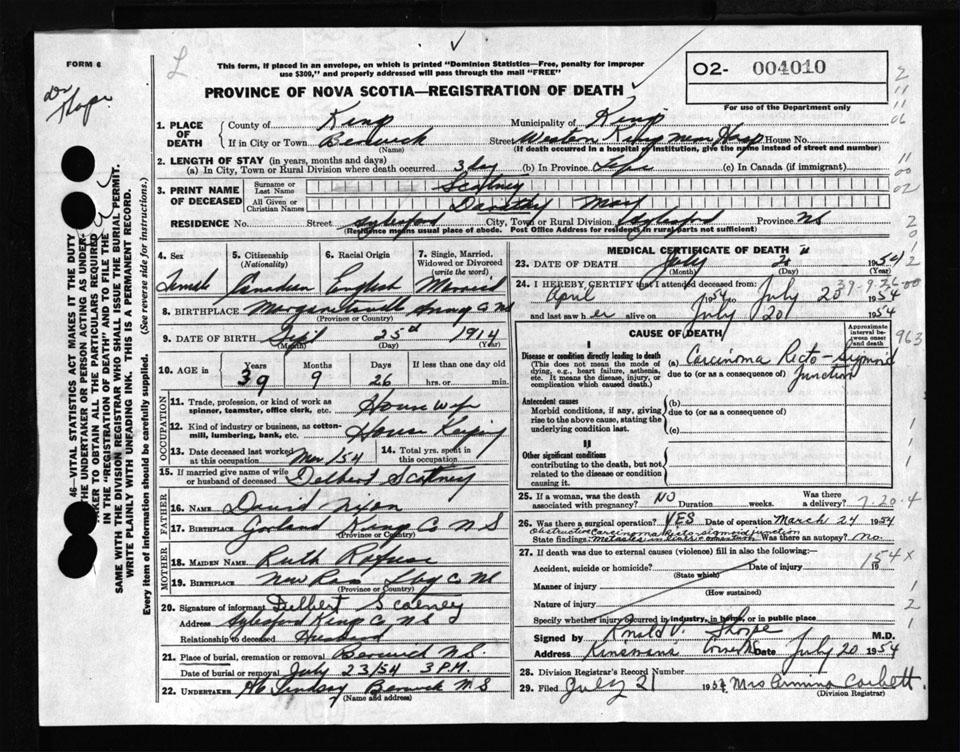 FORM 6
L
This form, if placed in an envelope, on which is printed "Dominion Statistics—Free, penalty for improper
use $300," and properly addressed will pass through the mail "FREE"
O2- 004010
For use of the Department only
PROVINCE OF NOVA SCOTIA—REGISTRATION OF DEATH
Dr Thorpe
46 VITAL STATISTICS ACT MAKES IT THE DUTY
THE UNDERTAKER OR PERSON ACTING AS UNDER-
TAKER TO OBTAIN ALL THE PARTICULARS REQUIRED
IN THE "REGISTRATION OF DEATH" AND TO FILE THE
SAME WITH THE DIVISION REGISTRAR WHO SHALL ISSUE THE BURIAL PERMIT.
WRITE PLAINLY WITH UNFADING INK. THIS IS A PERMANENT RECORD.
Every item of information should be carefully supplied. (See reverse side for instructions.)
1. PLACE OF DEATH County of King Municipality of Kings
If in City or Town Berwick Street Western Kings Mem Hosp House No.
(Name) (If death occurred in a hospital or institution, give the name instead of street and number)
2. LENGTH OF STAY (in years, months and days)
(a) In City, Town or Rural Division where death occurred 3 day (b) In Province Life (c) In Canada (if immigrant)
3. PRINT NAME OF DECEASED Surname or Last Name
All Given or Christian Names Dorothy May
RESIDENCE No. Street Aylesford City, Town or Rural Division Aylesford Province NS
(Residence means usual place of abode. Post Office Address for residents in rural parts not sufficient)
4. Sex Female
5. Citizenship (Nationality) Canadian
6. Racial Origin English
7. Single, Married, Widowed or Divorced (write the word) Married
8. BIRTHPLACE Margaretsville Anna C NS
(Province or Country)
9. DATE OF BIRTH Sept 25th 1914
(Month) (Day) (Year)
10. AGE in Years 39 Months 9 Days 26 If less than one day hrs. or min.
OCCUPATION
11. Trade, profession, or kind of work as spinner, teamster, office clerk, etc. House wife
12. Kind of industry or business, as cotton-mill, lumbering, bank, etc. House Keeping
13. Date deceased last worked at this occupation Mar /54 14. Total yrs. spent in this occupation
15. If married give name of wife or husband of deceased Delbert
FATHER
16. Name David Nixon
17. Birthplace Kings Co N S
(Province or Country)
MOTHER
18. Maiden Name Ruth
19. Birthplace New Ross
(Province or Country)
20. Signature of informant Delbert
Address Aylesford Kings C NS
Relationship to deceased Husband
21. Place of burial, cremation or removal Berwick NS
Date of burial or removal July 23/54 3 P.M.
22. UNDERTAKER Lindsay Berwick N S
(Name and address)
MEDICAL CERTIFICATE OF DEATH
23. DATE OF DEATH July 20 1954
(Month) (Day) (Year)
24. I HEREBY CERTIFY that I attended deceased from:
April 1954 to July 20 1954
and last saw her alive on July 20 1954
39-9-26-00
CAUSE OF DEATH
Approximate interval between onset and death
I
Disease or condition directly leading to death
(This does not mean the mode of dying, e.g., heart failure, asthenia, etc. It means the disease, injury, or complication which caused death.)
(a) Carcinoma Recto-Sigmoid
due to (or as a consequence of) Junction
Antecedent causes
Morbid conditions, if any, giving rise to the above cause, stating the underlying condition last.
(b)
due to (or as a consequence of)
(c)
II
Other significant conditions
contributing to the death, but not related to the disease or condition causing it.
25. If a woman, was the death associated with pregnancy? No Duration weeks. Was there a delivery?
7-20-4
26. Was there a surgical operation? YES Date of operation March 24 1954
Obstructive Carcinoma Recto sigmoid junction
State findings: Was there an autopsy? No.
27. If death was due to external causes (violence) fill in also the following:—
Accident, suicide or homicide? Date of injury 19
(State which)
154X
Manner of injury
(How sustained)
Nature of injury
Specify whether injury occurred in industry, in home, or in public place
Signed by V. Thorpe M.D.
Address Date July 20 1954
28. Division Registrar's Record Number
29. Filed July 21 1954 Mrs Corbett
(Division Registrar)
963